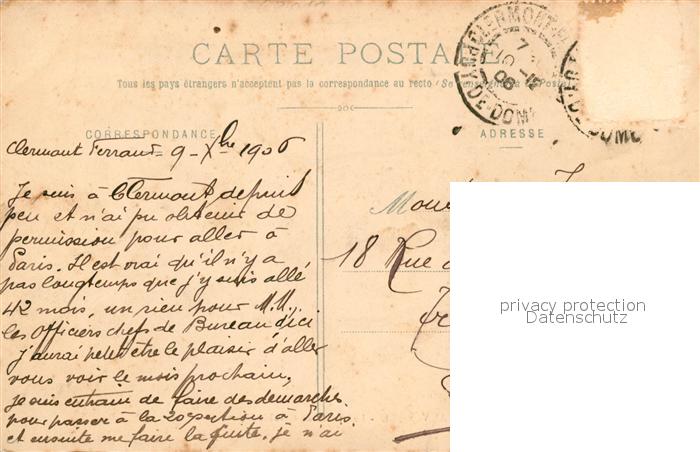 CARTE POSTALE
Tous les pays étrangers n'acceptent pas la correspondance au recto (Se renseigner à la Poste)
CORRESPONDANCE
ADRESSE
CLERMONT-F
PUY-DE-DOME
7
10
06
DE-DOME
Clermont Ferrand - 9 - Xbre 1906
Je suis à Clermont depuis
peu et n'ai pu obtenir de
permission pour aller à
Paris. Il est vrai qu'il n'y a
pas longtemps que j'y suis allé
42 mois, un rien pour M.M.
les officiers chefs de Bureau d'ici
j'aurai peut être le plaisir d'aller
vous voir le mois prochain,
je suis entrain de faire des demarches
pour passer à la 20e section à Paris.
et ensuite me faire la fuite. je n'ai
18 Rue
privacy protection
Datenschutz